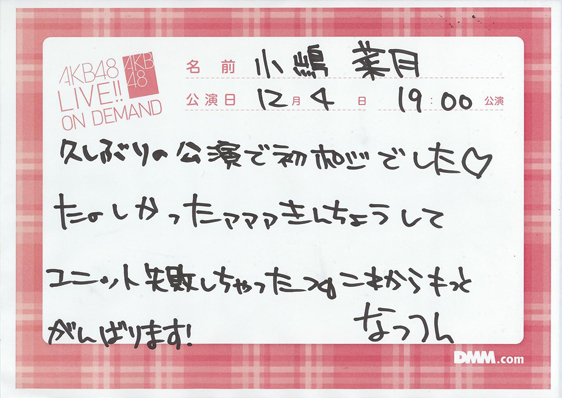 AKB48
LIVE!!
ON DEMAND
AKB
48
名前 小嶋 菜月
公演日 12月4日 19:00公演
久しぶりの公演で初ポジでした♡
たのしかったァァァきんちょうして
ユニット失敗しちゃった これからもっと
がんばります!
なっつん
DMM.com